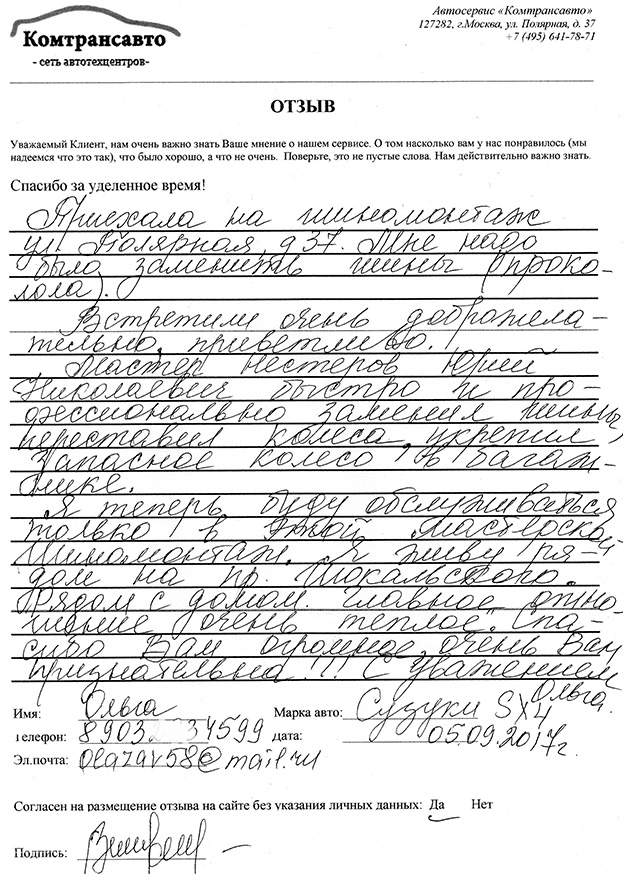 Комтрансавто
- сеть автотехцентров-
Автосервис «Комтрансавто»
127282, г.Москва, ул. Полярная, д. 37
+7 (495) 641-78-71
ОТЗЫВ
Уважаемый Клиент, нам очень важно знать Ваше мнение о нашем сервисе. О том насколько вам у нас понравилось (мы
надеемся что это так), что было хорошо, а что не очень. Поверьте, это не пустые слова. Нам действительно важно знать.
Спасибо за уделенное время!
Приехала на шиномонтаж
ул. Полярная, д 37. Мне надо
было заменить шины (проко-
лола).
Встретили очень доброжела-
тельно, приветливо.
Мастер Нестеров Юрий
Николаевич быстро и про-
фессионально заменил шины,
переставил колеса, укрепил
запасное колесо в багаж-
нике.
Я теперь буду обслуживаться
только в этой мастерской
Шиномонтаж. Я живу ря-
дом на пр. Шокальского.
Рядом с домом. Главное отно-
шение очень теплое. Спа-
сибо Вам огромное, очень Вам
признательна!!! С уважением
Ольга.
Имя: Ольга Марка авто: Сузуки SX4
Телефон: 8903 34599 Дата: 05.09.2017г.
Эл.почта: olazar58@mail.ru
Согласен на размещение отзыва на сайте без указания личных данных: Да Нет
Подпись: